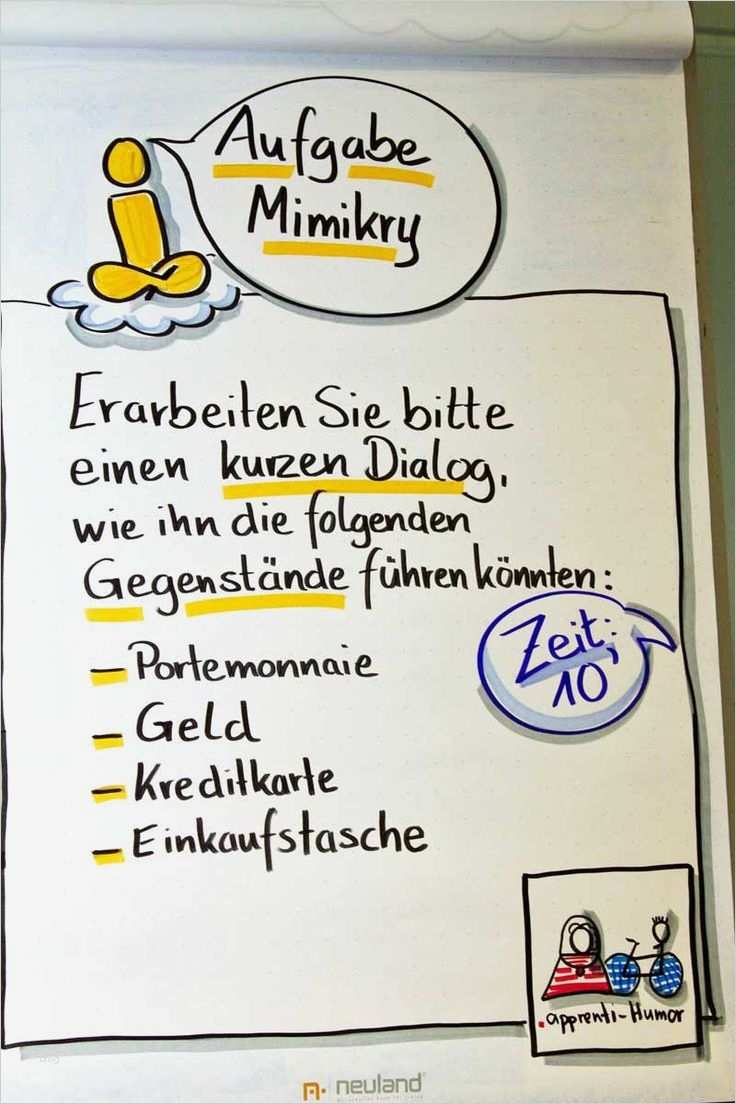 Aufgabe
Mimikry
Erarbeiten Sie bitte
einen kurzen Dialog,
wie ihn die folgenden
Gegenstände führen könnten:
Zeit:
10
- Portemonnaie
- Geld
- Kreditkarte
- Einkaufstasche
.apprenti-Humor
neuland